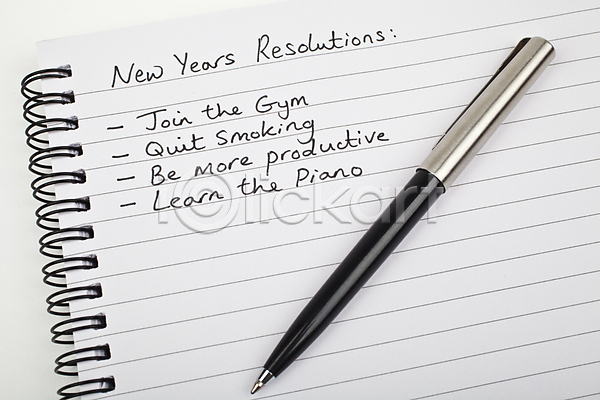 New Years Resolutions:
- Join the Gym
- Quit Smoking
- Be more productive
- Learn the Piano
iclickart